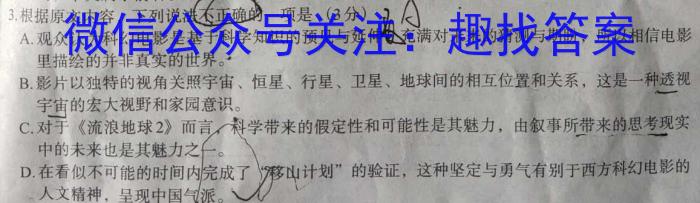 3.根据原文内容,下列说法不正确的一项是(3分)
微信公众号关注:趣找答案
A.观众 科幻电影是基于科学知识的预 与延伸 充满对 相信电影
里描绘的并非真实的世界。
B.影片以独特的视角关照宇宙、恒星、行星、卫星、地球间的相互位置和关系,这是一种透视
宇宙的宏大视野和家园意识。
C.对于《流浪地球2》而言,科学带来的假定性和可能性是其魅力,由叙事所带来的思考现实
中的未来也是其魅力之一。
D.在看似不可能的时间内完成了“移山计划”的验证,这种坚定与勇气有别于西方科幻电影的
人文精神,呈现中国气派。